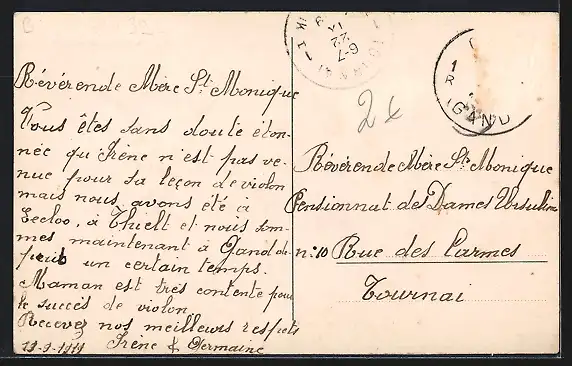 Révérende Mère Ste Monique
Vous êtes sans doute éton-
née qu'Irène n'est pas ve-
nue pour sa leçon de violon
mais nous avons été à
Eecloo, à Thielt et nous som-
mes maintenant à Gand de-
puis un certain temps.
Maman est très contente pour
le succès de violon.
Recevez nos meilleurs respects
Irène & Germaine
2x
Révérende Mère Ste Monique
Pensionnat des Dames Ursulines
n: 10 Rue des Carmes
Tournai
6-7
22
IX
GAND